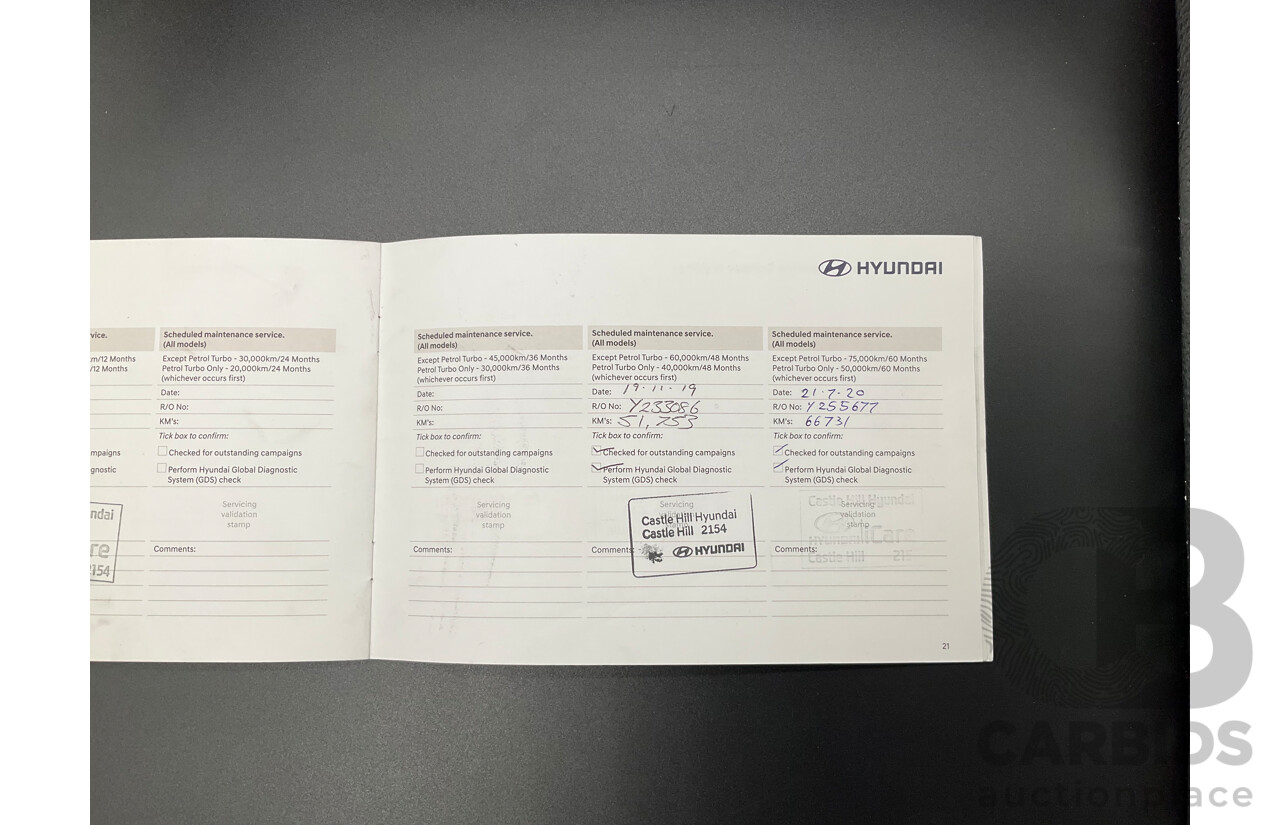 HYUNDAI
vice.
m/12 Months
/12 Months
mpaigns
gnostic
ndai
re
2154
Scheduled maintenance service.
(All models)
Except Petrol Turbo - 30,000km/24 Months
Petrol Turbo Only - 20,000km/24 Months
(whichever occurs first)
Date:
R/O No:
KM's:
Tick box to confirm:
Checked for outstanding campaigns
Perform Hyundai Global Diagnostic
System (GDS) check
Servicing
validation
stamp
Comments:
Scheduled maintenance service.
(All models)
Except Petrol Turbo - 45,000km/36 Months
Petrol Turbo Only - 30,000km/36 Months
(whichever occurs first)
Date:
R/O No:
KM's:
Tick box to confirm:
Checked for outstanding campaigns
Perform Hyundai Global Diagnostic
System (GDS) check
Servicing
validation
stamp
Comments:
Scheduled maintenance service.
(All models)
Except Petrol Turbo - 60,000km/48 Months
Petrol Turbo Only - 40,000km/48 Months
(whichever occurs first)
Date: 19-11-19
R/O No: Y233086
KM's: 51,753
Tick box to confirm:
Checked for outstanding campaigns
Perform Hyundai Global Diagnostic
System (GDS) check
Servicing
Castle Hill Hyundai
Castle Hill 2154
HYUNDAI
Comments:
Scheduled maintenance service.
(All models)
Except Petrol Turbo - 75,000km/60 Months
Petrol Turbo Only - 50,000km/60 Months
(whichever occurs first)
Date: 21-7-20
R/O No: Y255677
KM's: 66731
Tick box to confirm:
Checked for outstanding campaigns
Perform Hyundai Global Diagnostic
System (GDS) check
Castle Hill Hyundai
Servicing
validation
stamp
HYUNDAI iCare
Comments:
Castle Hill 215
21
CARBIDS
auctionplace